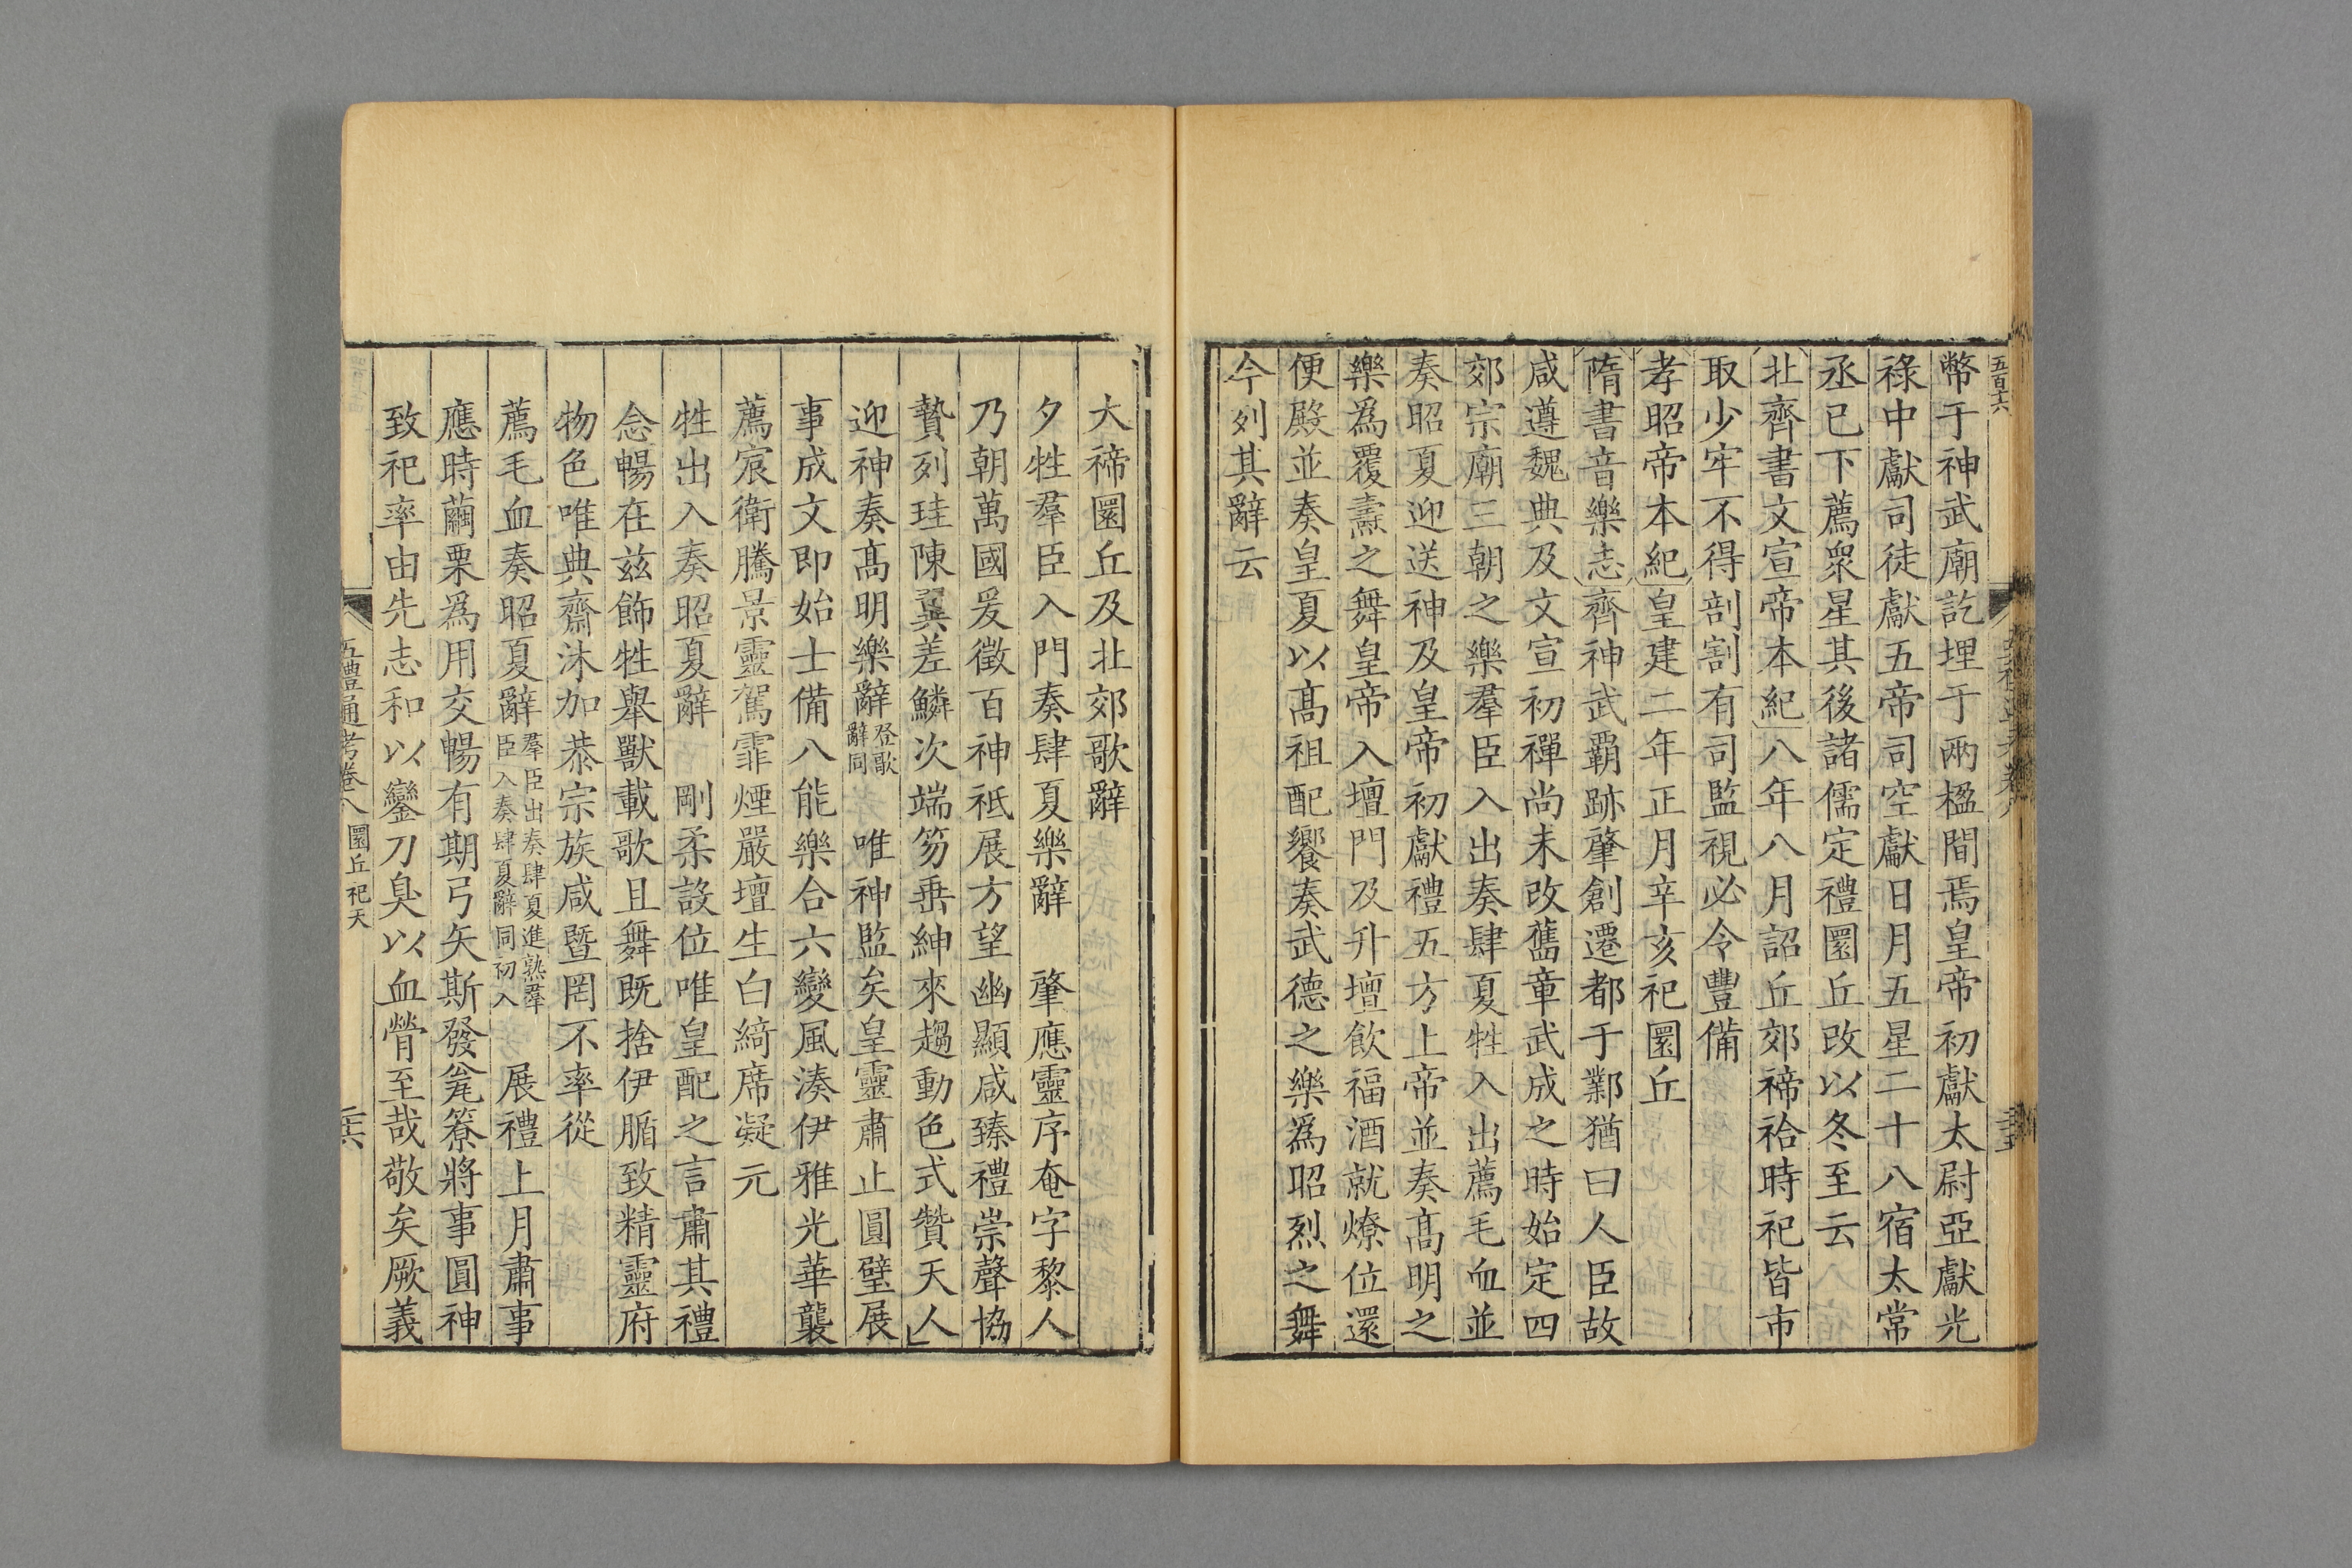 五百十六
幣于神武廟訖埋于兩楹間焉皇帝初獻太尉亞獻光
祿中獻司徒獻五帝司空獻日月五星二十八宿太常
丞已下薦衆星其後諸儒定禮圜丘改以冬至云
北齊書文宣帝本紀八年八月詔丘郊禘祫時祀皆市
取少牢不得剖割有司監視必令豐備
孝昭帝本紀皇建二年正月辛亥祀圜丘
隋書音樂志齊神武霸跡肇創遷都于鄴猶曰人臣故
咸遵魏典及文宣初禪尚未改舊章武成之時始定四
郊宗廟三朝之樂羣臣入出奏肆夏牲入出薦毛血並
奏昭夏迎送神及皇帝初獻禮五方上帝並奏高明之
樂爲覆燾之舞皇帝入壇門及升壇飮福酒就燎位還
便殿並奏皇夏以高祖配饗奏武德之樂爲昭烈之舞
今列其辭云
大禘圜丘及北郊歌辭
夕牲羣臣入門奏肆夏樂辭　肇應靈序奄字黎人
乃朝萬國爰徵百神祗展方望幽顯咸臻禮崇聲協
贄列珪陳翼差鱗次端笏垂紳來趨動色式贊天人
迎神奏高明樂辭登歌辭同　唯神監矣皇靈肅止圓璧展
事成文即始士備八能樂合六變風湊伊雅光華襲
薦宸衛騰景靈駕霏煙嚴壇生白綺席凝元
牲出入奏昭夏辭　剛柔設位唯皇配之言肅其禮
念暢在茲飾牲舉獸載歌且舞既捨伊腯致精靈府
物色唯典齋沐加恭宗族咸暨罔不率從
薦毛血奏昭夏辭羣臣出奏肆夏進熟羣臣入奏肆夏辭同初入　展禮上月肅事
應時繭栗爲用交暢有期弓矢斯發瓮簝將事圓神
致祀率由先志和以鑾刀臭以血膋至哉敬矣厥義
五禮通考卷八 圜丘祀天　二六